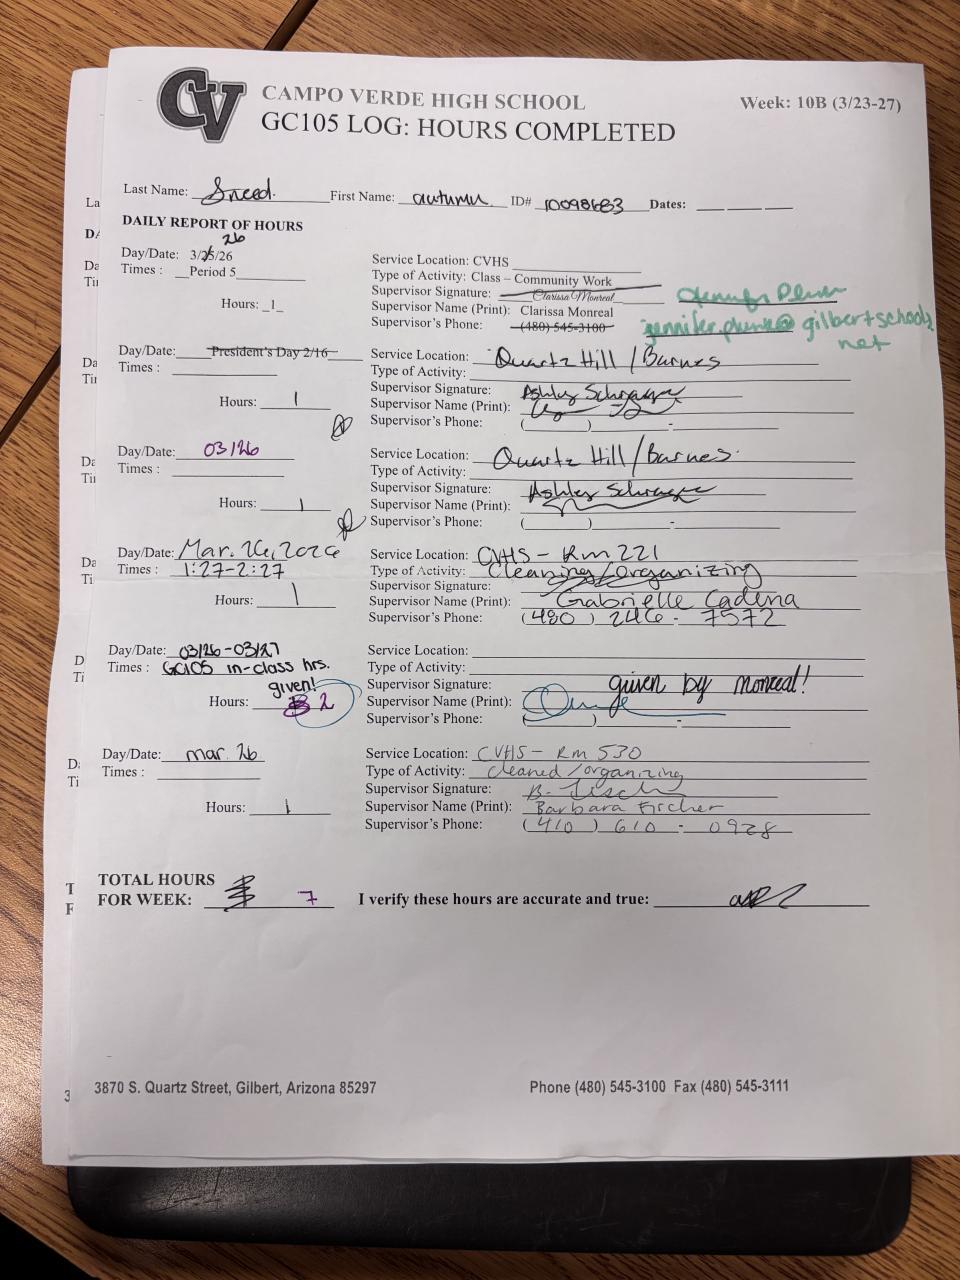 CV
CAMPO VERDE HIGH SCHOOL
Week: 10B (3/23-27)
GC105 LOG: HOURS COMPLETED
Last Name: Sneed. First Name: autumn ID# 10098683 Dates:
DAILY REPORT OF HOURS
26
Day/Date: 3/25/26
Times : Period 5
Hours: 1
Service Location: CVHS
Type of Activity: Class – Community Work
Supervisor Signature: Clarissa Monreal
Supervisor Name (Print): Clarissa Monreal
Supervisor's Phone: (480) 545-3100
jennifer.plunk@gilbertschools
net
Day/Date: President's Day 2/16
Times :
Hours: 1
Service Location: Quartz Hill / Barnes
Type of Activity:
Supervisor Signature: Ashley
Supervisor Name (Print):
Supervisor's Phone: ( ) -
Day/Date: 03/26
Times :
Hours: 1
Service Location: Quartz Hill / Barnes
Type of Activity:
Supervisor Signature: Ashley
Supervisor Name (Print):
Supervisor's Phone: ( ) -
Day/Date: Mar. 26, 2026
Times : 1:27-2:27
Hours: 1
Service Location: CVHS - Rm 221
Type of Activity: Cleaning/organizing
Supervisor Signature:
Supervisor Name (Print): Gabrielle Cadena
Supervisor's Phone: (480) 246 - 7572
Day/Date: 03/26-03/27
Times : GC105 in-class hrs.
given!
Hours: 2
Service Location:
Type of Activity:
Supervisor Signature: given by monreal!
Supervisor Name (Print):
Supervisor's Phone: ( ) -
Day/Date: mar. 26
Times :
Hours: 1
Service Location: CVHS - Rm 530
Type of Activity: cleaned/organizing
Supervisor Signature: B.
Supervisor Name (Print): Barbara Fircher
Supervisor's Phone: (410) 610 - 0928
TOTAL HOURS
FOR WEEK: 7
I verify these hours are accurate and true:
3870 S. Quartz Street, Gilbert, Arizona 85297
Phone (480) 545-3100 Fax (480) 545-3111